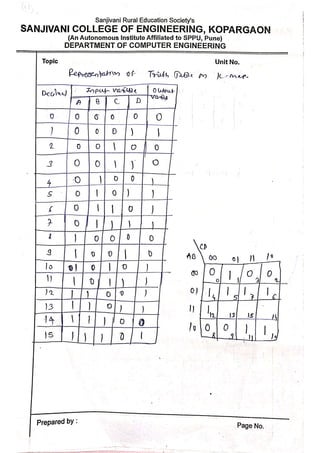 Sanjivani Rural Education Society's
SANJIVANI COLLEGE OF ENGINEERING, KOPARGAON
(An Autonomous Institute Affiliated to SPPU, Pune)
DEPARTMENT OF COMPUTER ENGINEERING
Topic Unit No.
Representation of Truth Table on K-map
Decimal Input variable Output
A B C D
0 0 0 0 0 0
1 0 0 0 1 1
2 0 0 1 0 0
3 0 0 1 1 0
4 0 1 0 0 1
5 0 1 0 1 1
6 0 1 1 0 1
7 0 1 1 1 1
8 1 0 0 0 0
9 1 0 0 1 0
10 1 0 1 0 1
11 1 0 1 1 1
12 1 1 0 0 1
13 1 1 0 1
14 1 1 1 0
15 1 1 1
CD
AB 00 01 11 10
00 0 1 0 0
0 1 3 2
01 1 1 1 1
4 5 7 6
11 1 1 1 1
12 13 15 14
10 0 0 1 1
8 9 11 10
Prepared by : Page No.